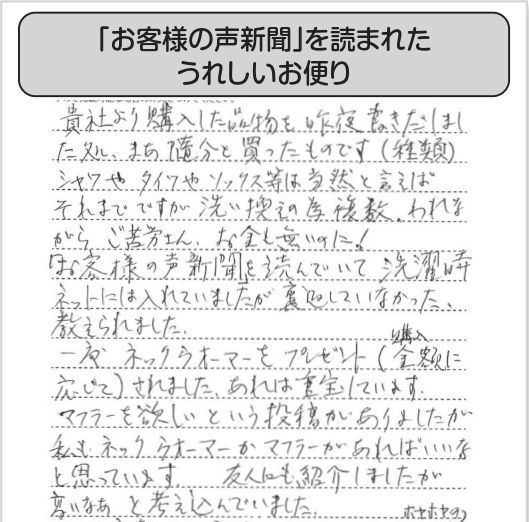 「お客様の声新聞」を読まれた
うれしいお便り
貴社より購入した品物を昨夜書きだしまし
た処、まあ随分と買ったものです(種類)
シャツや タイツや ソックス等は当然と言えば
それまでですが 洗い換えの為 複数、われな
がら ご苦労さん、お金も無いのに!
「お客様の声新聞」を読んでいて 洗濯時
ネットには入れていましたが 裏返していなかった、
教えられました。
一度 ネックウオーマーを プレゼント(購入金額に
応じて)されました、あれは重宝しています。
マフラーを欲しい という投稿がありましたが
私も ネックウオーマーか マフラーがあればいいな
と思っています 友人にも紹介しましたが
高いなあ と考え込んでいました。